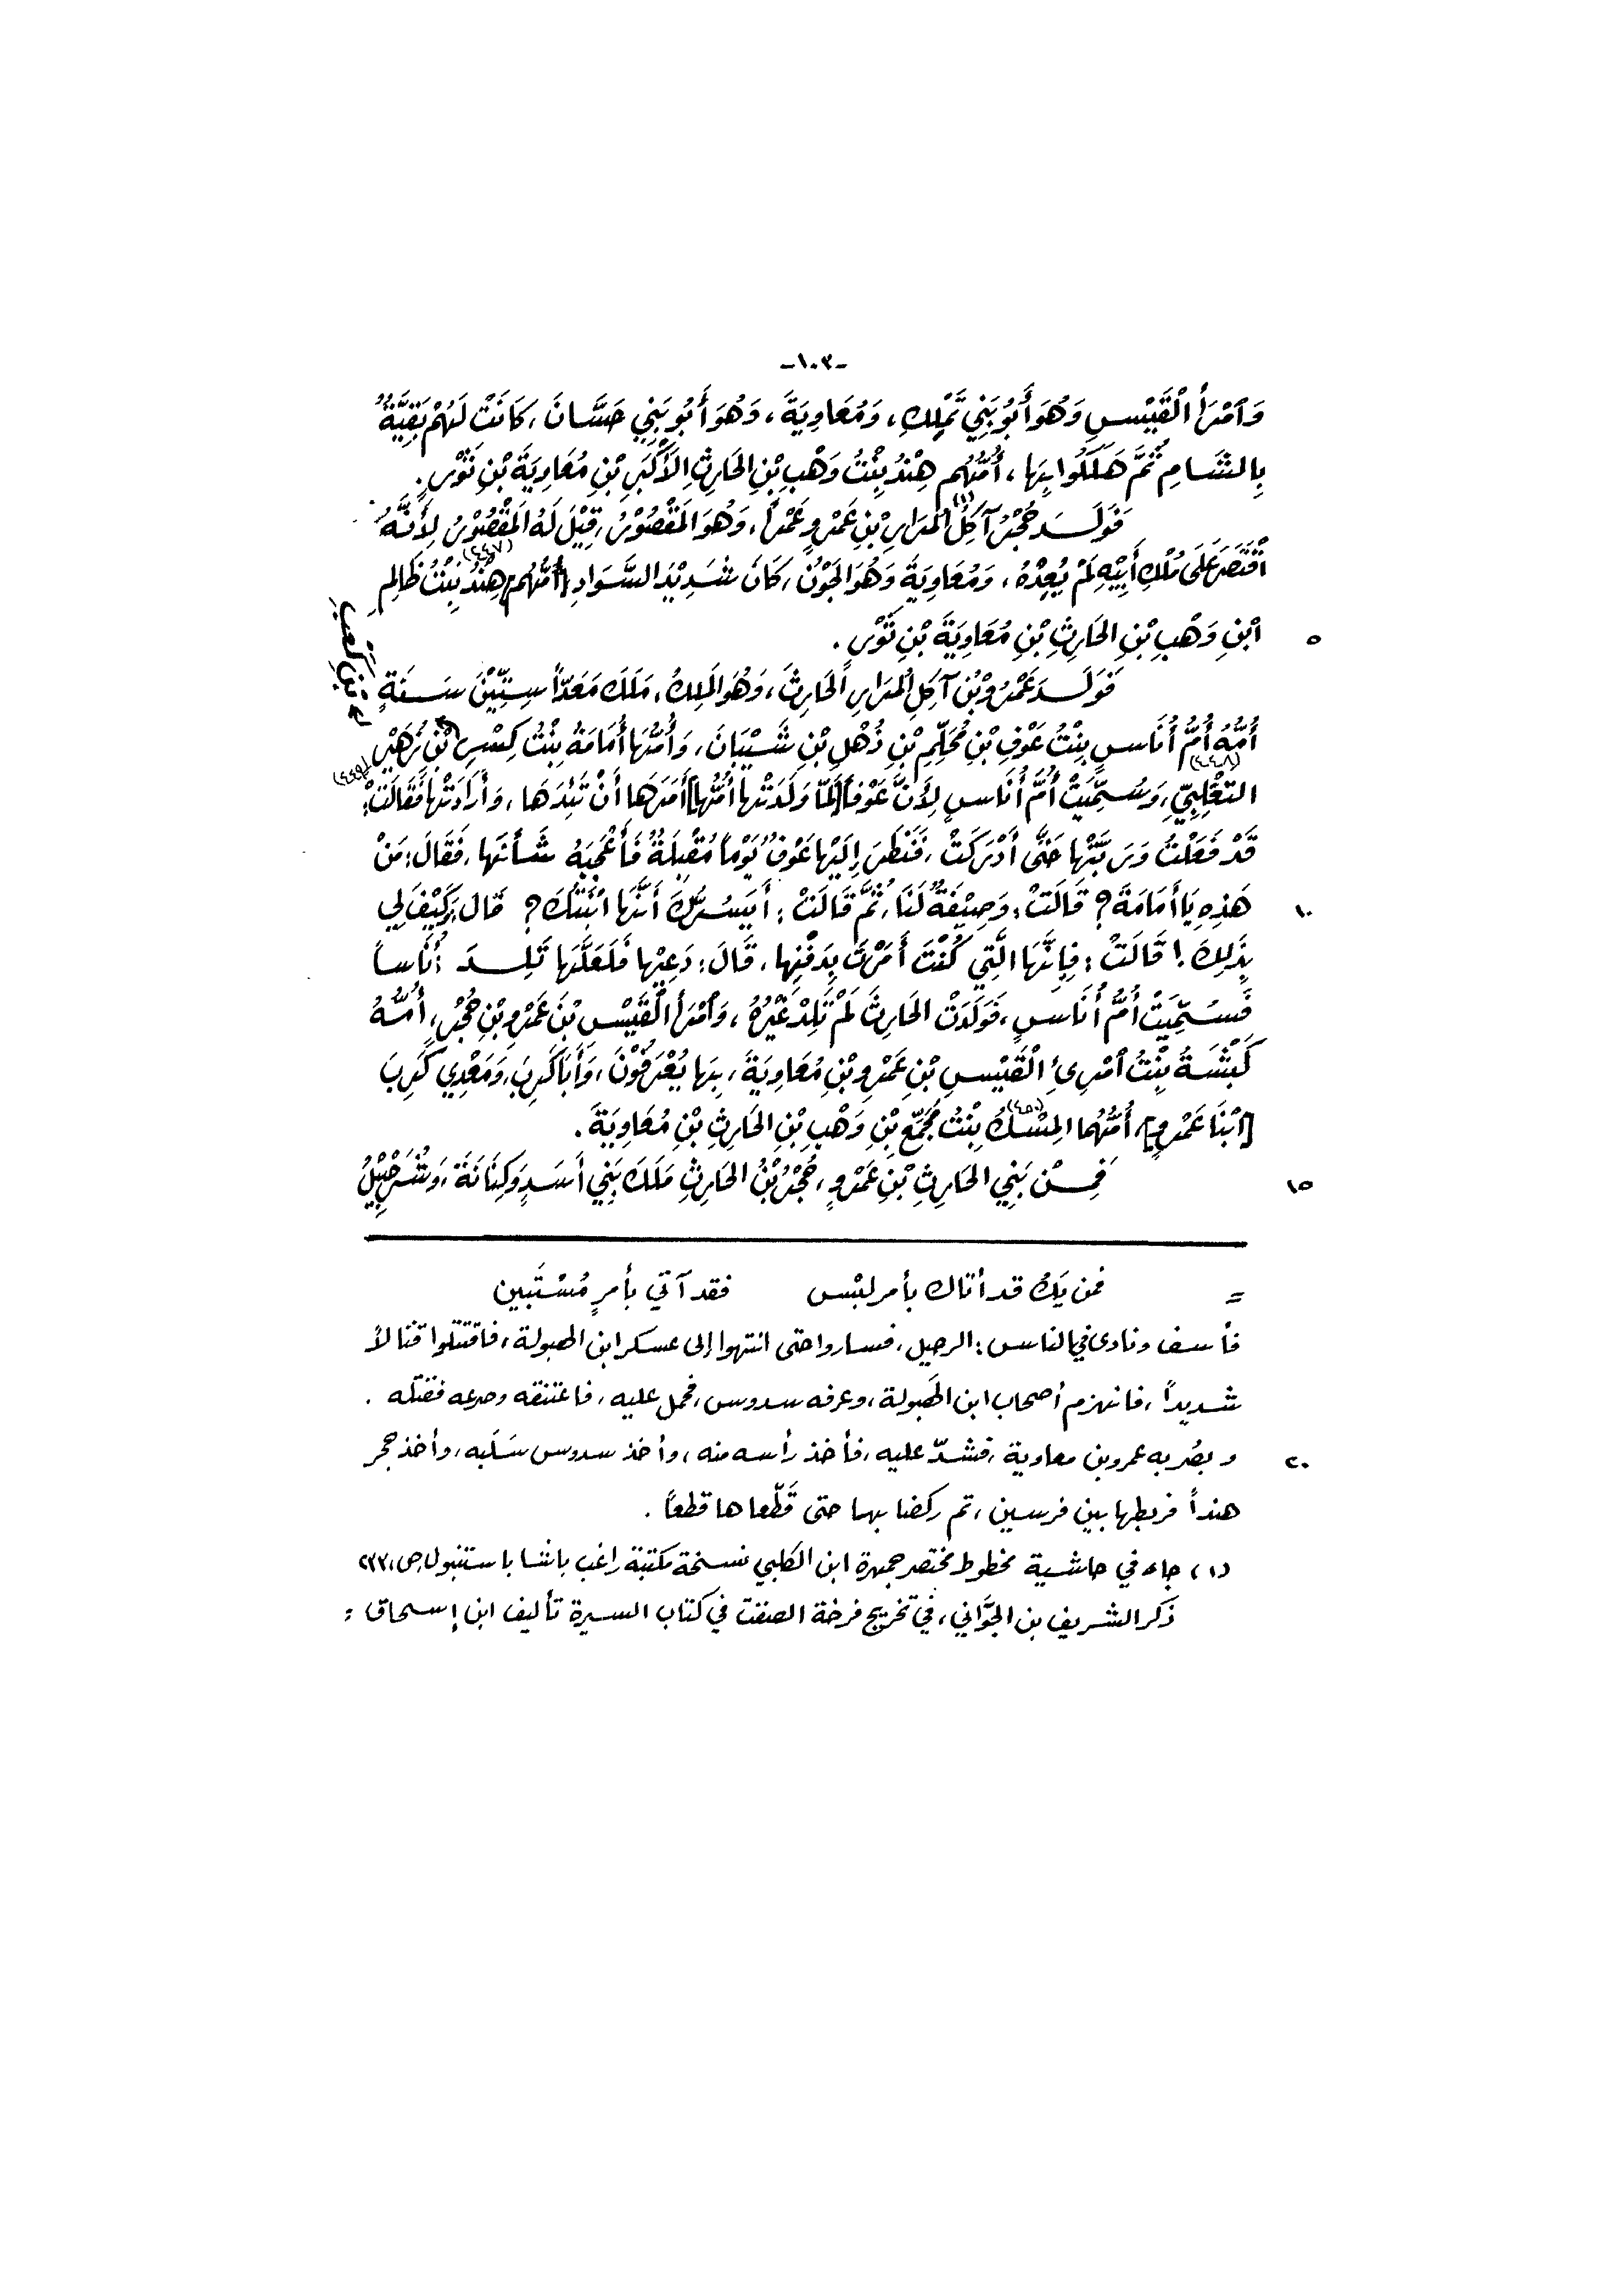 -١٠٣-
وَٱمْرَأَ الْقَيْسِ وَهُوَ أَبُو بَنِي تَمْلِكِ، وَمُعَاوِيَةَ، وَهُوَ أَبُو بَنِي حَسَّانَ، كَانَتْ لَهُمْ بَقِيَّةٌ
بِالشَّامِ ثُمَّ هَلَكُوا بِهَا، أُمُّهُم هِنْدُ بِنْتُ وَهْبِ بْنِ الحَارِثِ الأَكْبَرِ بْنِ مُعَاوِيَةَ بْنِ ثَوْرٍ.
فَوَلَدَ حُجْرُ آكِلُ (١) المُرَارِ بْنِ عَمْرٍو عَمْراً، وَهُوَ المَقْصُوْرُ، قِيْلَ لَهُ المَقْصُوْرُ لِأَنَّهُ
ٱقْتَصَرَ عَلَى مُلْكِ أَبِيْهِ لَمْ يُعِدْهُ، وَمُعَاوِيَةَ وَهُوَ الجَوْنُ، كَانَ شَدِيْدَ السَّوَادِ [أُمُّهُم] هِنْدُ (٤٤٧) بِنْتُ ظَالِمِ
ٱبْنِ وَهْبِ بْنِ الحَارِثِ بْنِ مُعَاوِيَةَ بْنِ ثَوْرٍ.
٥
فَوَلَدَ عَمْرُو بْنُ آكِلِ المُرَارِ الحَارِثَ، وَهُوَ المَلِكُ، مَلَكَ مَعَدّاً سِتِّيْنَ سَنَةٍ
أُمُّهُ أُمُّ أُنَاسٍ بِنْتُ عَوْفِ بْنِ مُحَلِّمِ بْنِ ذُهْلِ بْنِ شَيْبَانَ، وَأُمُّهَا أُمَامَةُ بِنْتُ كِسْرِ بْنِ زُهَيْرٍ
بْنِ كَعْبِ
التَّغْلِبِيِّ (٤٤٨)، وَسُمِّيَتْ أُمَّ أُنَاسٍ لِأَنَّ عَوْفاً [لَمّا وَلَدَتْهَا أُمُّهَا] أَمَرَهَا أَنْ تَئِدَهَا، وَأَرَادَتْهَا فَقَالَتْ: (٤٤٩)
قَدْ فَعَلْتُ وَرَبَّتْهَا حَتَّى أَدْرَكَتْ، فَنَظَرَ إِلَيْهَا عَوْفٌ يَوْماً مُقْبِلَةً فَأَعْجَبَهُ شَأْنُهَا، فَقَالَ: مَنْ
هَذِهِ يَا أُمَامَةُ؟ قَالَتْ: وَصِيْفَةٌ لَنَا، ثُمَّ قَالَتْ: أَيَسُرُّكَ أَنَّهَا ابْنَتُكَ؟ قَالَ: وَكَيْفَ لِي
١٠
بِذَلِكَ! قَالَتْ: فَإِنَّهَا الَّتِي كُنْتَ أَمَرْتَ بِدَفْنِهَا، قَالَ: دَعِيْهَا فَلَعَلَّهَا تَلِدَ أُنَاساً
فَسُمِّيَتْ أُمَّ أُنَاسٍ، فَوَلَدَتْ الحَارِثَ لَمْ تَلِدْ غَيْرَهُ، وَٱمْرَأَ الْقَيْسِ بْنَ عَمْرِو بْنِ حُجْرٍ، أُمُّهُ
كَبْشَةُ بِنْتُ ٱمْرِئِ الْقَيْسِ بْنِ عَمْرِو بْنِ مُعَاوِيَةَ، بِهَا يُعْرَفُوْنَ، وَأَبَا كَرِبَ، وَمَعْدِي كَرِبَ
[ٱبْنَا عَمْرٍو]، أُمُّهُمَا المِسْكُ (٤٥٠) بِنْتُ مُجَمِّعِ بْنِ وَهْبِ بْنِ الحَارِثِ بْنِ مُعَاوِيَةَ.
فَمِنْ بَنِي الحَارِثِ بْنِ عَمْرٍو، حُجْرُ بْنُ الحَارِثِ مَلَكَ بَنِي أَسَدٍ وَكِنَانَةَ، وَشُرَحْبِيْلُ
١٥
=
فمن يَكُ قد أتاك بأمر لَبْس فقد آتي بأمرٍ مُسْتَبين
فأسف ونادى في الناس: الرحيل، فساروا حتى انتهوا إلى عسكر ابن الهبولة، فاقتتلوا قتالاً
شديداً، فانهزم أصحاب ابن الهَبولة، وعرفه سدوس، فحمل عليه، فاعتنقه وصرعه فقتله.
وبصُر به عمرو بن معاوية، فشدّ عليه، فأخذ رأسه منه، وأخذ سدوس سَلَبه، وأخذ حجر
٢٠
هنداً فربطها بين فرسين، ثم ركضا بهما حتى قَطّعاها قطعاً.
(١) جاء في حاشية مخطوط مختصر جمهرة ابن الكلبي نسخة مكتبة راغب باشا باستنبول ص، ٢٣٢
ذكر الشريف بن الجوَّاني، في تخريج فرخة الصنفت في كتاب السيرة تأليف ابن إسحاق =